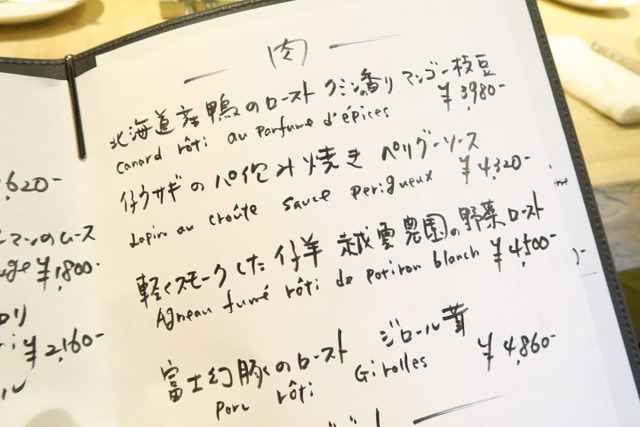 肉
北海道産鴨のロースト クミンの香り マンゴー 枝豆
Canard rôti au parfum d'épices ¥3980-
仔ウサギのパイ包み焼き ペリグーソース
Lapin au croûte sauce perigueux ¥4,320-
軽くスモークした仔羊 越雲農園の野菜ロースト
Agneau fumé rôti de potiron blanch ¥4,500-
富士幻豚のロースト ジロール茸
porc rôti Girolles ¥4,860-
,620-
マンのムース
¥1,800-
¥2,160-
ル